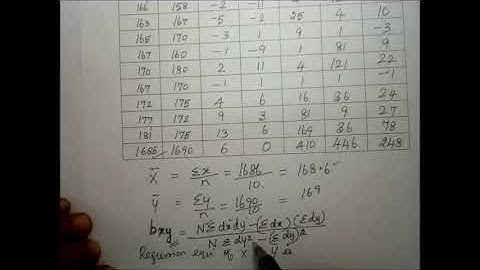 166 158 -2 -11 4
163 167 -5 -2 25 4 10
165 170 -3 1 9 1 -3
167 160 -1 -9 1 81 9
170 180 2 11 4 121 22
167 170 -1 1 1 1 -1
172 175 4 6 16 36 24
177 172 9 3 81 9 27
181 175 13 6 169 36 78
1686 1690 6 0 410 446 248
X̄ = Σx/n = 1686/10. = 168.6
ȳ = Σy/n = 1690/10 = 169
bxy = NΣdxdy-(Σdx)(Σdy) / NΣdy²-(Σdy)²
Regression equⁿ X Y is